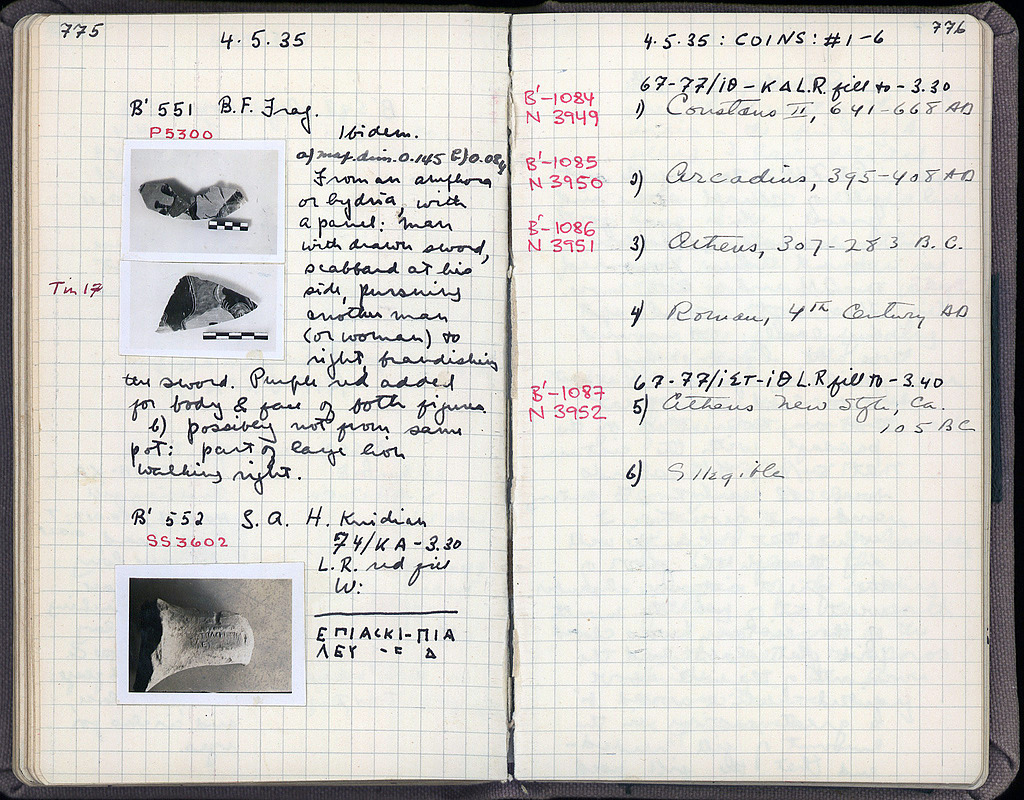 775
4.5.35
B' 551 B.F. Frag.
P5300
Ibidem.
a) max. dim. 0.145 b) 0.084
From an amphora
or hydria, with
a panel: man
with drawn sword,
scabbard at his
Tin 17
side, pursuing
another man
(or woman) to
right, brandishing
the sword. Purple red added
for body & face of both figures
b) possibly not from same
pot: part of large lion
walking right.
B' 552 S.A.H. Knidian
SS3602
74/KA-3.30
L.R. red fill
W:
ΕΠΙΑΣΚΙ-ΠΙΑ
ΛΕΥ -Ε Δ
776
4.5.35: COINS: #1-6
67-77/ΙΘ-ΚΑ L.R. fill to -3.30
B'-1084
N 3949
1) Constans II, 641-668 AD
B'-1085
N 3950
2) Arcadius, 395-408 AD
B'-1086
N 3951
3) Athens, 307-283 B.C.
4) Roman, 4TH Century AD
67-77/ΙΣΤ-ΙΘ L.R fill to -3.40
B'-1087
N 3952
5) Athens New Style, Ca.
105 BC
6) Illegible